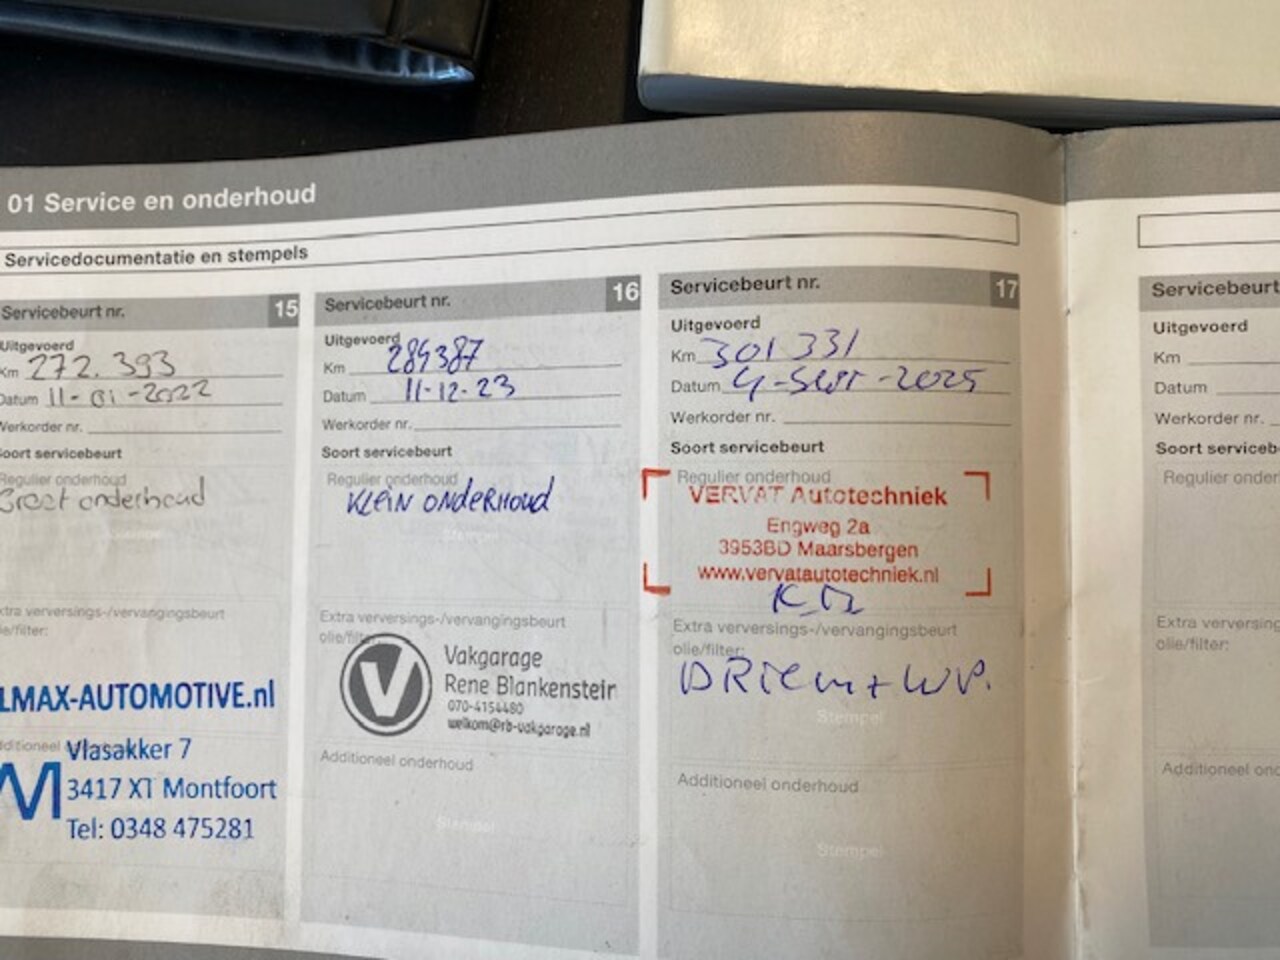 01 Service en onderhoud
Servicedocumentatie en stempels
Servicebeurt nr. 15
Uitgevoerd
Km 272.393
Datum 11-01-2022
Werkorder nr.
Soort servicebeurt
Regulier onderhoud
Groot onderhoud
Stempel
xtra verversings-/vervangingsbeurt
lie/filter:
LMAX-AUTOMOTIVE.nl
dditioneel
M
Vlasakker 7
3417 XT Montfoort
Tel: 0348 475281
Servicebeurt nr. 16
Uitgevoerd
Km 289387
Datum 11-12-23
Werkorder nr.
Soort servicebeurt
Regulier onderhoud
KLEIN ONDERHOUD
Stempel
Extra verversings-/vervangingsbeurt
olie/filter:
V
Vakgarage
Rene Blankenstein
070-4154480
welkom@rb-vakgarage.nl
Additioneel onderhoud
Stempel
Servicebeurt nr. 17
Uitgevoerd
Km 301 331
Datum 4-Sept-2025
Werkorder nr.
Soort servicebeurt
Regulier onderhoud
VERVAT Autotechniek
Engweg 2a
3953BD Maarsbergen
www.vervatautotechniek.nl
Extra verversings-/vervangingsbeurt
olie/filter:
DRiem + WP.
Stempel
Additioneel onderhoud
Stempel
Servicebeurt
Uitgevoerd
Km
Datum
Werkorder nr.
Soort serviceb
Regulier onder
Extra verversing
olie/filter:
Additioneel ond